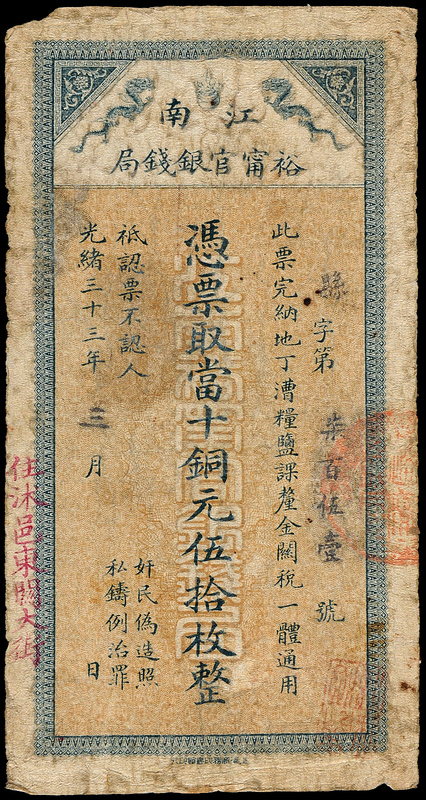 江南
裕甯官銀錢局
縣字第柒百伍壹號
此票完納地丁漕糧鹽課釐金關稅一體通用
憑票取當十銅元伍拾枚整
祗認票不認人
奸民偽造照
私鑄例治罪
光緒三十三年三月日
住沭邑東關大街